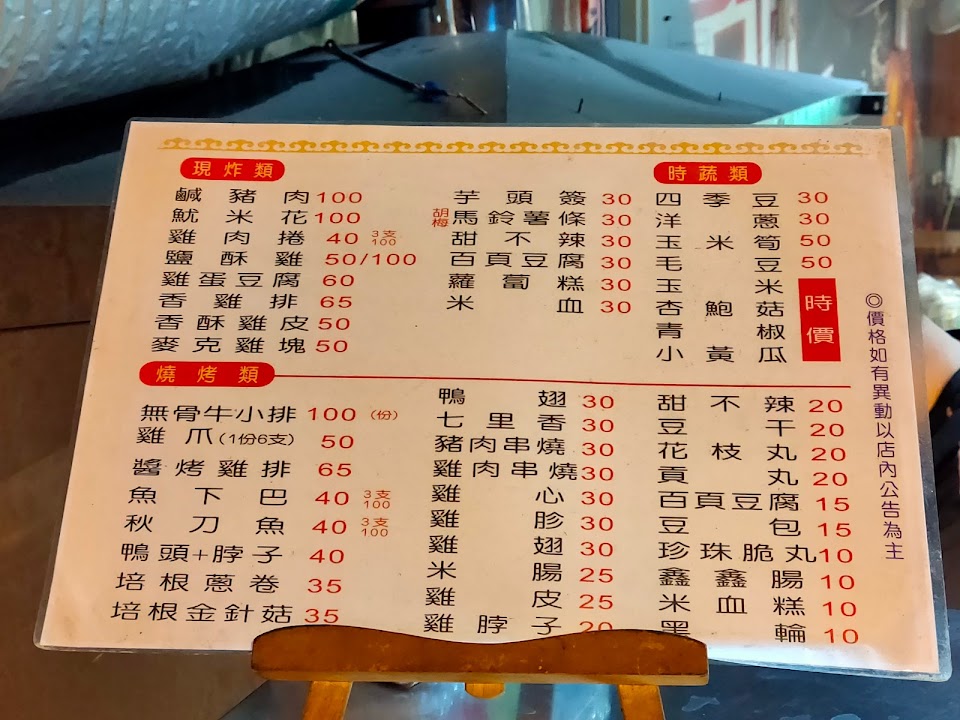 現炸類
鹹豬肉100
魷米花100
雞肉捲 40 3支100
鹽酥雞 50/100
雞蛋豆腐 60
香雞排 65
香酥雞皮 50
麥克雞塊 50
芋頭簽 30
胡梅 馬鈴薯條 30
甜不辣 30
百頁豆腐 30
蘿蔔糕 30
米血 30
時蔬類
四季豆 30
洋蔥 30
玉米筍 50
毛豆 50
玉米
杏鮑菇
青椒
小黃瓜
時價
燒烤類
無骨牛小排 100 (份)
雞爪(1份6支) 50
醬烤雞排 65
魚下巴 40 3支100
秋刀魚 40 3支100
鴨頭+脖子 40
培根蔥卷 35
培根金針菇 35
鴨翅 30
七里香 30
豬肉串燒 30
雞肉串燒 30
雞心 30
雞胗 30
雞翅 30
米腸 25
雞皮 25
雞脖子 20
甜不辣 20
豆干 20
花枝丸 20
貢丸 20
百頁豆腐 15
豆包 15
珍珠脆丸 10
鑫鑫腸 10
米血糕 10
黑輪 10
◎價格如有異動以店內公告為主